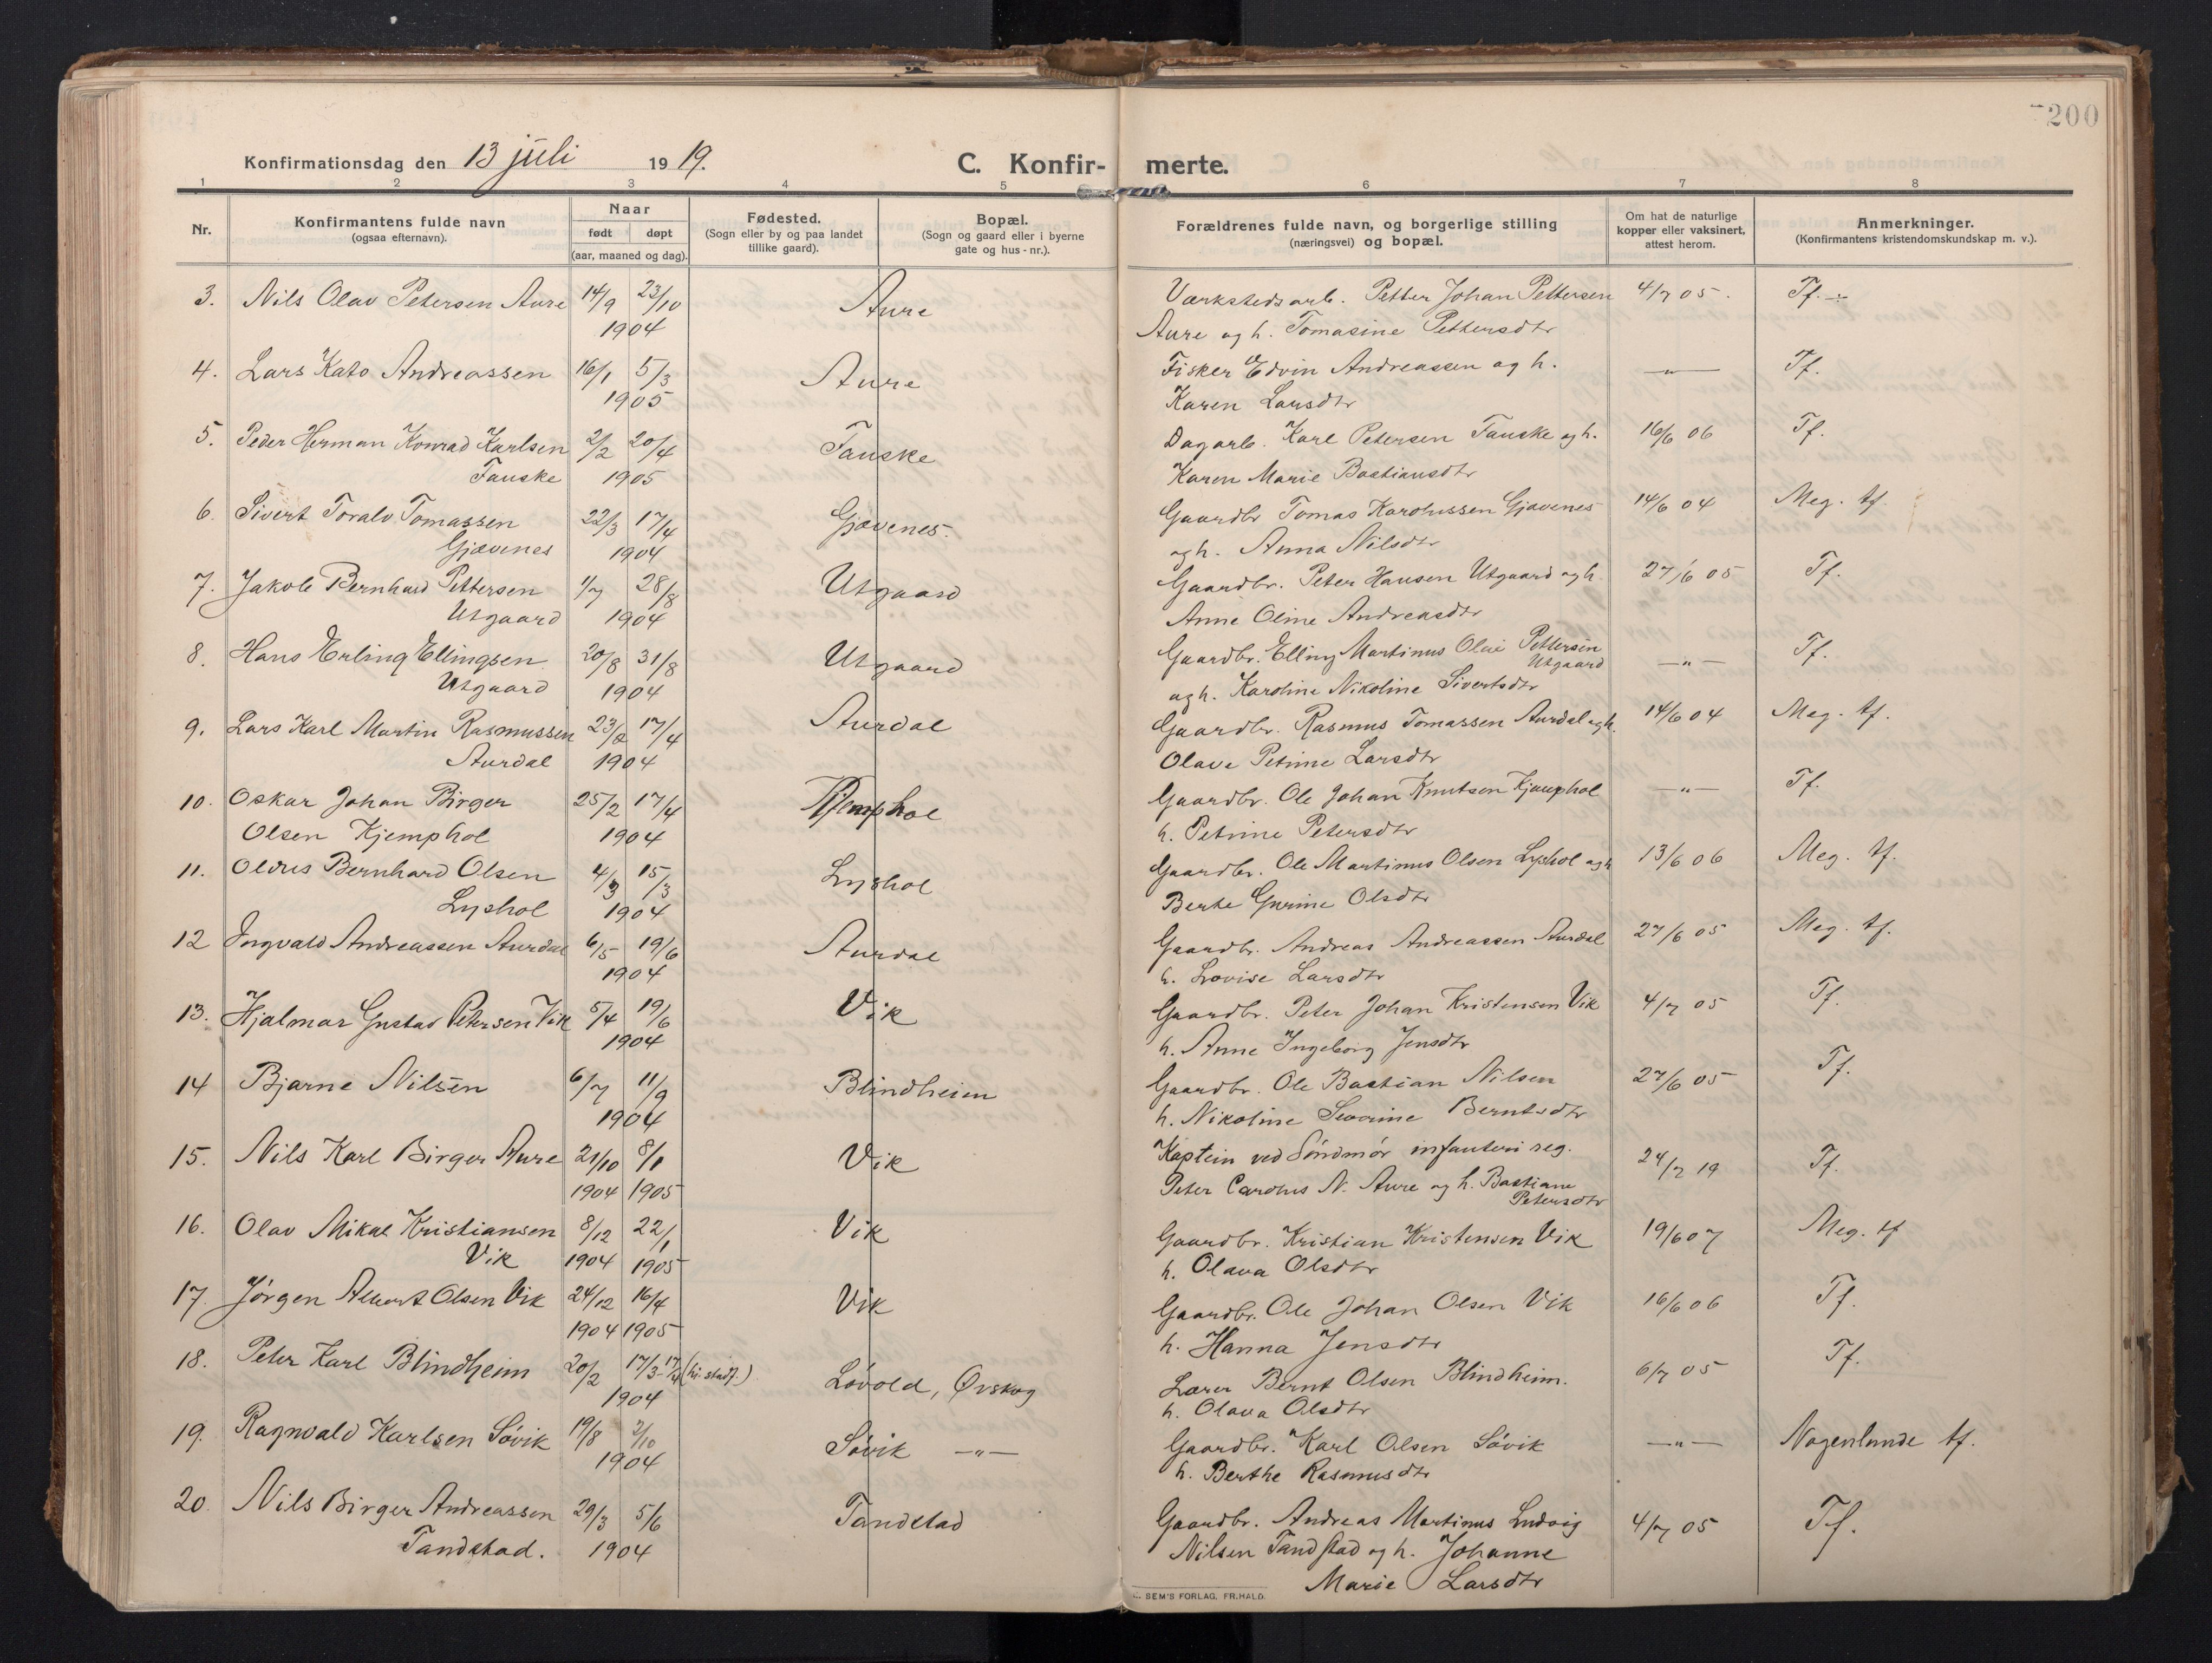 200
Konfirmationsdag den 13 juli 1919.
C. Konfir- merte.
1 2 3 4 5 6 7 8
Nr.
Konfirmantens fulde navn
(ogsaa efternavn).
Naar
født døpt
(aar, maaned og dag).
Fødested.
(Sogn eller by og paa landet
tillike gaard).
Bopæl.
(Sogn og gaard eller i byerne
gate og hus-nr.).
Forældrenes fulde navn, og borgerlige stilling
(næringsvei) og bopæl.
Om hat de naturlige
kopper eller vaksinert,
attest herom.
Anmerkninger.
(Konfirmantens kristendomskundskap m. v.).
3. Nils Olav Petersen Aure 14/9 23/10 Aure Værkstedsarb. Petter Johan Pettersen 4/7 05. Tf.
1904 Aure og h. Tomasine Pettersdtr
4. Lars Kato Andreassen 16/1 5/3 Aure Fisker Edvin Andreassen og h. —"— Tf.
1905 Karen Larsdtr
5. Peder Herman Konrad Karlsen 2/2 20/4 Fauske Dagarb. Karl Petersen Fauske og h. 16/6 06 Tf.
Fauske 1905 Karen Marie Bastiansdtr
6. Sivert Toralv Tomassen 22/3 17/4 Gjævenes. Gaardbr Tomas Karolussen Gjævenes 14/6 04 Meg. tf.
Gjævenes 1904 og h. Anna Nilsdtr
7. Jakob Bernhard Pettersen 1/7 28/8 Utgaard Gaardbr. Peter Hansen Utgaard og h. 27/6 05 Tf.
Utgaard 1904 Anne Oline Andreasdtr
8. Hans Erling Ellingsen 20/8 31/8 Utgaard Gaardbr. Elling Martinus Olai Pettersen —"— Tf.
Utgaard
Utgaard 1904 og h. Karoline Nikoline Sivertsdtr
9. Lars Karl Martin Rasmussen 23/2 17/4 Aurdal Gaardbr. Rasmus Tomassen Aurdal og h. 14/6 04 Meg. tf.
Aurdal 1904 Olave Petrine Larsdtr
10. Oskar Johan Birger 25/2 17/4 Kjemphol Gaardbr. Ole Johan Knutsen Kjemphol —"— Tf.
Olsen Kjemphol 1904 h. Petrine Petersdtr
11. Oldus Bernhard Olsen 4/3 15/3 Lyshol Gaardbr. Ole Martinus Olsen Lyshol og h 13/6 06 Meg. tf.
Lyshol 1904 Berte Gurine Olsdtr
12 Ingvald Andreassen Aurdal 6/5 19/6 Aurdal Gaardbr. Andreas Andreassen Aurdal 27/6 05 Meg. tf.
1904 h. Lovise Larsdtr
13. Hjalmar Gustav Petersen Vik 5/4 19/6 Vik Gaardbr. Peter Johan Kristensen Vik 4/7 05 Tf.
1904 h. Anne Ingeborg Jensdtr
14 Bjarne Nilsen 6/7 11/9 Blindheim Gaardbr. Ole Bastian Nilsen 27/6 05 Tf.
1904 h. Nikoline Severine Berntsdtr
15. Nils Karl Birger Aure 21/10 8/1 Vik Kaptein ved Söndmör infanteri reg. 24/7 19 Tf.
1904 1905 Peter Carolus N. Aure og h. Bastiane
Petersdtr
16. Olav Mikal Kristiansen 8/12 22/1 Vik Gaardbr. Kristian Kristensen Vik 19/6 07 Meg. tf
Vik 1904 1905 h. Olava Olsdtr
17. Jörgen Albert Olsen Vik 24/12 16/4 Vik Gaardbr. Ole Johan Olsen Vik 16/6 06 Tf.
1904 1905 h. Hanna Jensdtr
18. Peter Karl Blindheim 20/2 17/3-17/4 (ki. stadf.) Lövold, Ørskog Lærer Bernt Olsen Blindheim. 6/7 05 Tf.
1904 h. Olava Olsdtr
19. Ragnvald Karlsen Sövik 19/8 2/10 Sövik —"— Gaardbr. Karl Olsen Sövik —"— Nogenlunde tf.
1904 h. Berthe Rasmusdtr
20. Nils Birger Andreassen 29/3 5/6 Tandstad Gaardbr. Andreas Martinus Ludvig 4/7 05 Tf.
Tandstad. 1904 Nilsen Tandstad og h. Johanne
Marie Larsdtr
SEM'S FORLAG, FR.HALD.